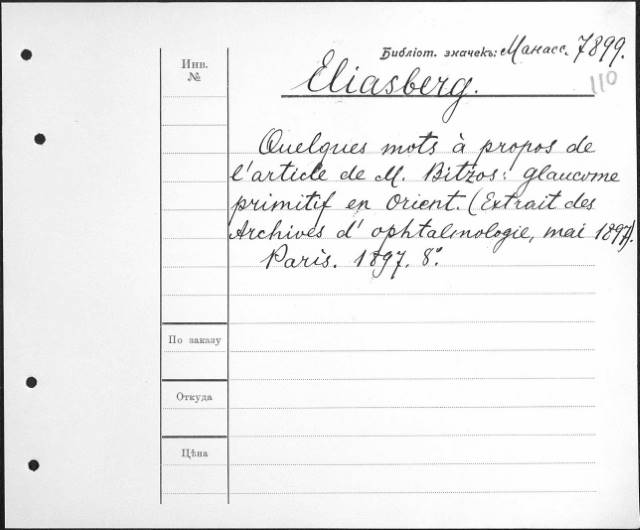 Библіот. значекъ: Манасс. 7899.
110
Инв.
№
Eliasberg.
Quelques mots à propos de
l'article de M. Bitzos: glaucome
primitif en Orient. (Extrait des
Archives d' ophtalmologie, mai 1897).
Paris. 1897. 8°.
По заказу
Откуда
Цѣна